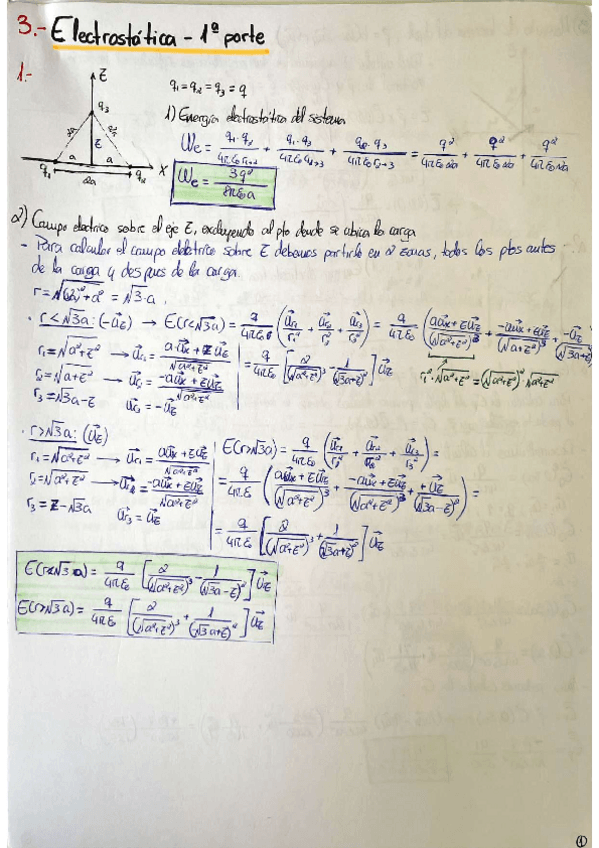 3.- Electrostática - 1ª parte
1.-
Z
q₁ = q₂ = q₃ = q
q₃
1) Energía electrostática del sistema
2a 2a
z
We = q₁·q₂/4πε₀r₁→₂ + q₁·q₃/4πε₀r₂→₃ + q₂·q₃/4πε₀r₁→₃ = q²/4πε₀2a + q²/4πε₀2a + q²/4πε₀2a
a a X
q₁ 2a q₂
We = 3q²/8πε₀a
2) Campo eléctrico sobre el eje Z, excluyendo al pto donde se ubica la carga
- Para calcular el campo eléctrico sobre Z debemos partirlo en 2 zonas, todos los ptos antes
de la carga y despues de la carga.
r = √(2a)²+a² = √3·a
· r<√3a: (-u⃗z) → E(r<√3a) = q/4πε₀ (u⃗r₁/r₁² + u⃗r₂/r₂² + u⃗r₃/r₃²) = q/4πε₀ (au⃗x+zu⃗z/(√a²+z²)³ + -au⃗x+zu⃗z/(√a+z²)³ + -u⃗z/(√3a+z)²
r₁ = √a²+z² → u⃗r₁ = a·u⃗x+zu⃗z/√a²+z²
= q/4πε₀ [2/(√a²+z²)³ - 1/(√3a+z)²] u⃗z
r₁²·√a²+z² = (√a²+z²)²·√a²+z²
r₂ = √a+z² → u⃗r₂ = -au⃗x+zu⃗z/√a²+z²
r₃ = √3a-z u⃗r₃ = -u⃗z
· r>√3a: (u⃗z)
r₁ = √a²+z² → u⃗r₁ = au⃗x+zu⃗z/√a²+z²
E(r>√3a) = q/4πε₀ (u⃗r₁/r₁² + u⃗r₂/r₂² + u⃗r₃/r₃²) =
r₂ = √a²+z² → u⃗r₂ = -au⃗x+zu⃗z/√a²+z²
= q/4πε₀ (au⃗x+zu⃗z/(√a²+z²)³ + -au⃗x+zu⃗z/(√a²+z²)³ + +u⃗z/(√3a-z)²) =
r₃ = z-√3a u⃗r₃ = u⃗z
= q/4πε₀ [2/(√a²+z²)³ + 1/(√3a+z)²] u⃗z
E(r<√3a) = q/4πε₀ [2/(√a²+z²)³ - 1/(√3a-z)²] u⃗z
E(r>√3a) = q/4πε₀ [2/(√a²+z²)³ + 1/(√3a+z)²] u⃗z
1